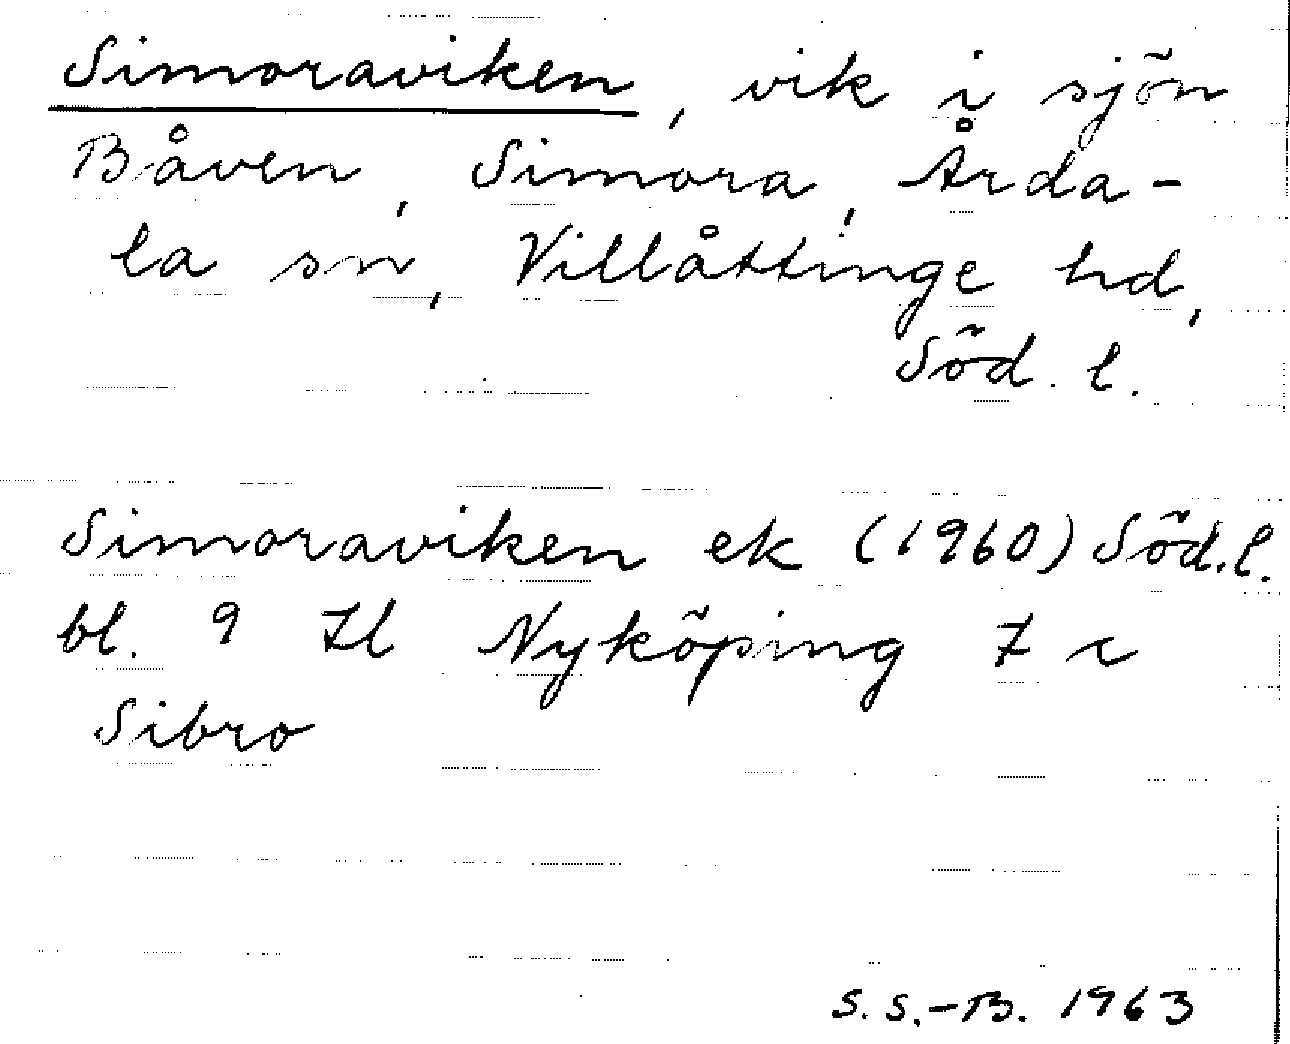 Simoraviken, vik i sjön
Båven, Simora, Årda-
la sn, Villåttinge hd,
Söd. l.
Simoraviken ek (1960) Söd. l.
bl. 9 Il Nyköping 7 c
Sibro
S. S.-B. 1963